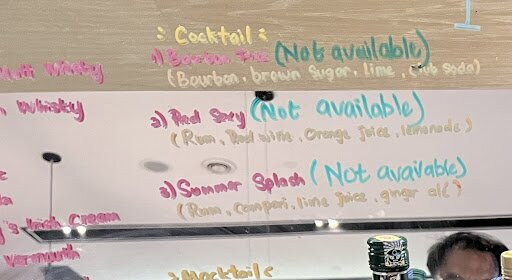 : Cocktail :
1) Bourbon (Not available)
(Bourbon, brown sugar, lime, club soda)
Whisky
Whisky
2) Red Sexy (Not available)
(Rum, Red wine, Orange juice, lemonade)
3) Summer Splash (Not available)
(Rum, Campari, lime juice, ginger el()
Irish Cream
Vermouth
: Mocktail :